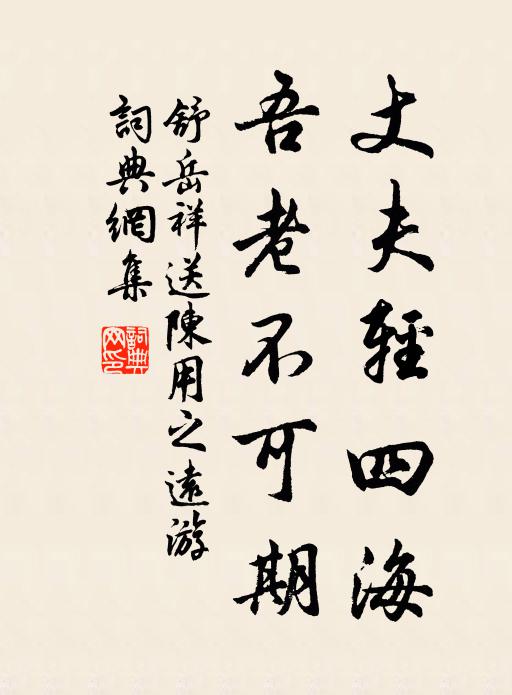 丈夫輕四海
吾老不可期
舒岳祥送陳用之遠游
詞典網集
詞典網印